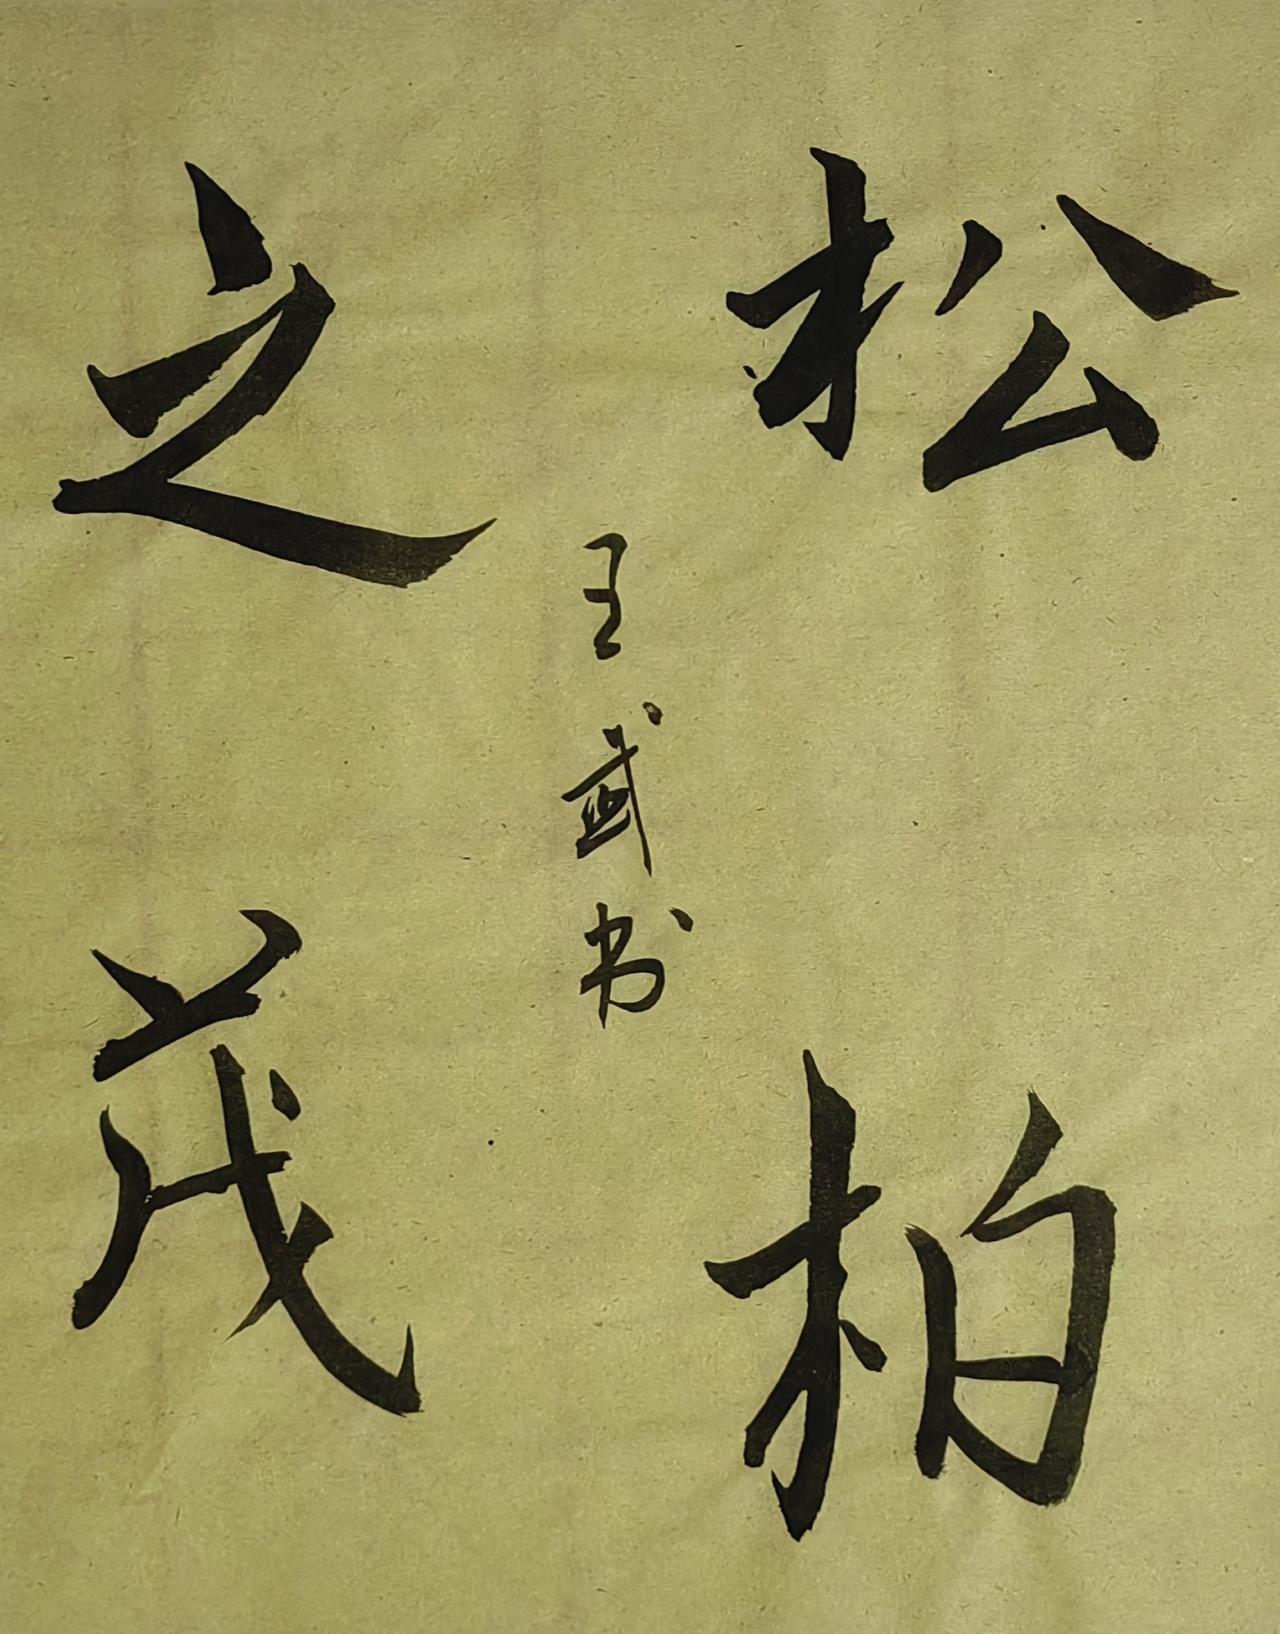 松柏
之茂
王武书